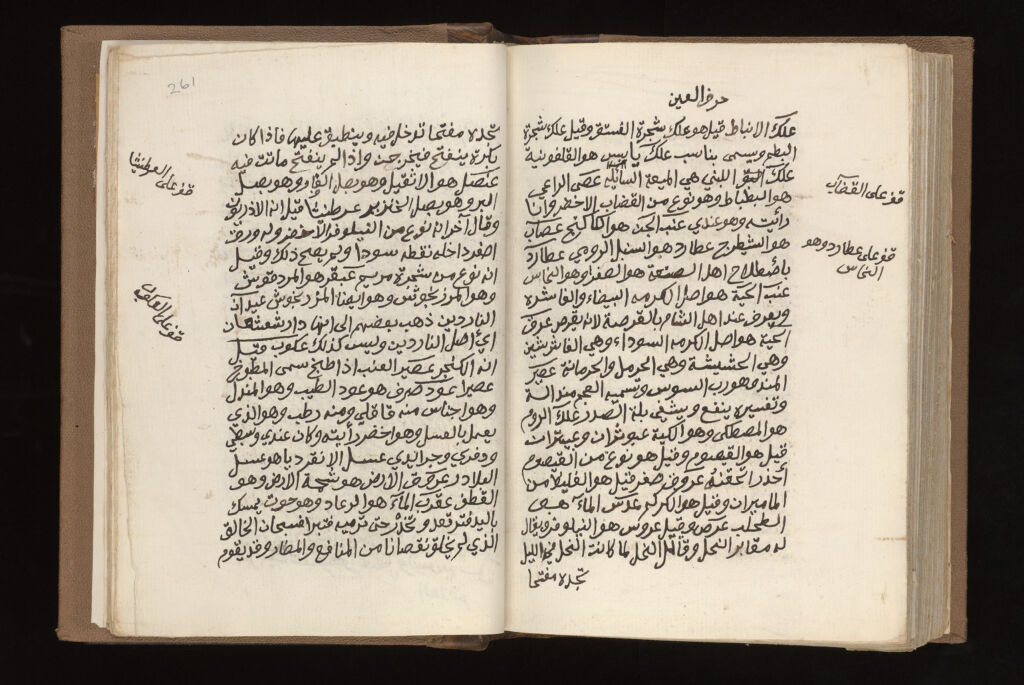 حرف العين
علك الانباط قيل هو علك شجرة الفستق وقيل علك شجرة
البطم ويسمى يناسب علك يابس هو القلفونية
علك اللبني هي الميعة السائلة عصى الراعي
هو البطباط وهو نوع من القضاب الاخضر وانا
رأيته وهو عندي عنب الجن هو الكاكنج عصاب
هو الشيطرج عطارد هو السنبل الرومي عطارد
باصطلاح اهل الصنعة هو الصفر وهو النحاس
عنب الحية هو اصل الكرمه البيضاء والفاشره
ويعرف عند اهل الشام بالقرصة لانه يقرص عرق
الحية هو اصل الكرمه السوداء وهي الفاشرشين
وهي الحشيشة وهي الحرمل والحرمانة عصير
وهو رب السوس وتسميه العجم
وتفسيره ينفع وينقي بلة الصدر علك الروم
هو المصطكى وهو الكية عبوثران وعبيثران
قيل هو القيصوم وقيل هو نوع من القيصوم
عروق صفر قيل هو القليلة من
الماميران وقيل هو الكركم عدس الماء هي
الطحلب عرص وقيل عروس هو النيلوفر ويقال
له مقابر النحل وقاتل النحل لما كانت النحل في الليل
تجده مفتحا
قف على القضاب
قف على عطارد وهو
النحاس
261
تجده مفتحا تدخل فيه وينطبق عليها فاذا كان
بكرة ينفتح فيخرجن واذا لم ينفتح ماتت فيه
عنصل هو الاشقيل وهو بصل الفار وهو بصل
البر وهو بصل الخنزير عرطنيثا قيل انه الاذريون
وقال آخر انه نوع من النيلوفر الاخضر وله ورق
اصفر داخله نقطه سودا ولم يصح ذلك وقيل
انه نوع من شجرة مريم عبقر هو المردقوش
وهو المرزنجوش وهو ايضا المردكوش عيدان
الناردين ذهب بعضهم الى انها دارشيشعان
اي اصل الناردين وليس كذلك عكوب وقيل
انه الكنجر عصير العنب اذا طبخ سمى المطبوخ
عصيرا عود صرف هو عود الطيب وهو المندل
وهو اجناس منه قاقلي ومنه رطب وهو الذي
يعمل بالعسل وهو اخضر رأيته وكان عندي
عسل الانقرديا هو عسل
البلادر عرق الارض هو شحمة الارض وهو
القطن عقرب الماء هو الرعاد وهو حوت يمسك
باليد فترعد وتخدر حتى ترميه فتبرا فسبحان الخالق
الذي لم يخلق نقصانا من المنافع والمضار وقد يقوم
قف على العرطنيثا
قف على العكوب